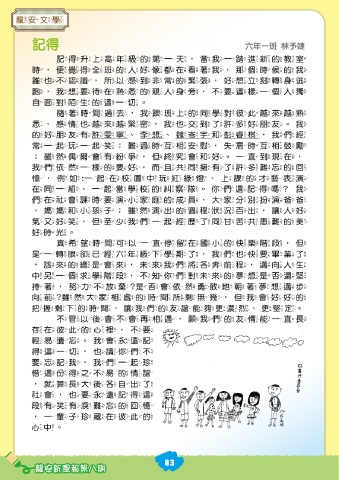 龍安文學
記得
六年一班 林予婕
記得升上高年級的第一天，當我一踏進新的教室
時，便覺得全班的人好像都在看著我，那個時候的我
誰也不認識，所以感到非常的緊張，好想立刻轉身逃
跑，我想要待在熟悉的親人身旁，不要這樣一個人獨
自面對陌生的這一切。
隨著時間過去，我跟班上的同學對彼此越來越熟
悉，感情也越來越緊密，我也交到了許多好朋友。我
的好朋友有許雯寧、李想、魏
我們經
常一起玩一起笑；難過時互相安慰，失意時互相鼓勵
；雖然偶爾會有紛爭，但終究會和好。一直到現在，
我們依然一樣的要好，而且共同擁有了許多難忘的回
憶，例如：一起在校園中玩紅綠燈、上課的才藝表演
在同一組、一起當學校的糾察隊。你們還記得嗎？我
們在社會課時要演小家庭的成員，大家分別扮演爸爸
、媽媽和小孩子；雖然演出的過程狀況百出，讓人好
氣又好笑，但至少我們一起經歷了同甘苦共患難的美
好時光。
真希望時間可以一直停留在國小的快樂階段，但
是一轉眼卻已經六年級下學期了，我們也快要畢業了
，該來的總是會來，未來我們將各奔前程，邁向人生
中另一個求學階段，不知你們對未來的夢想是否還堅
持著，努力不放棄？是否會依然勇敢地朝著夢想邁步
向前？雖然大家相處的時間所剩無幾，但我會好好的
把握剩下的時間，讓我們的友誼能夠更濃烈、更堅定。
不管以後會不會再相遇，願我們的友情能一直長
存在彼此的心裡，不要
輕易遺忘。我會永遠記
得這一切，也請你們不
要忘記我，我們一起珍
惜這份得之不易的情誼
，就算長大後各自出了
社會，也要永遠記得這
段有笑有淚難忘的回憶
，一輩子珍藏在彼此的
心中！
83